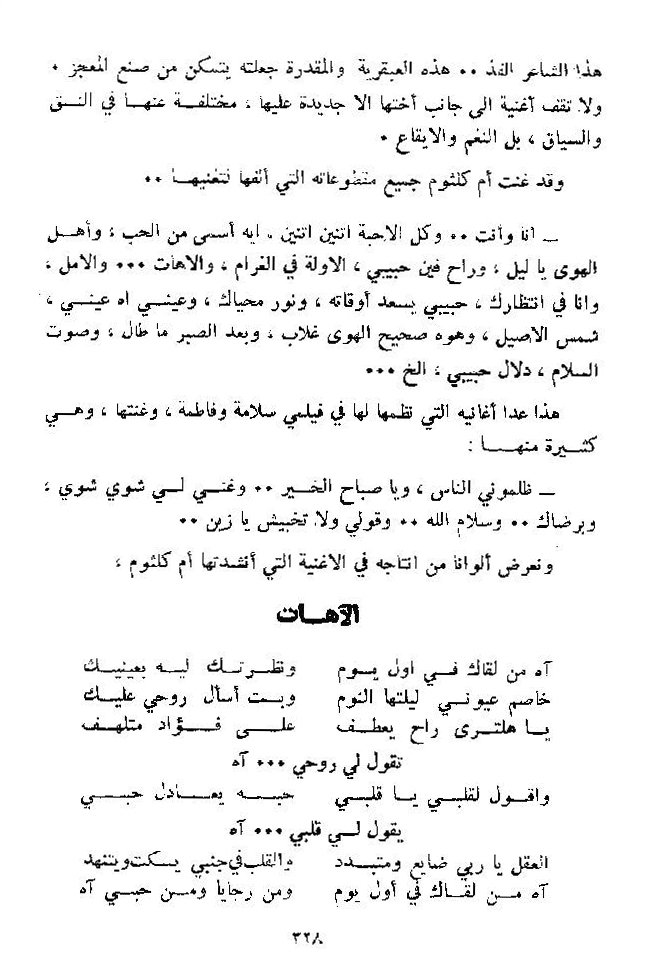 هذا الشاعر الفذ ٠٠ هذه العبقرية والمقدرة جعلته يتمكن من صنع المعجز ٠
ولا تقف أغنية الى جانب أختها الا جديدة عليها ، مختلفة عنها في النسق
والسياق ، بل النغم والايقاع ٠
وقد غنت أم كلثوم جميع مقطوعاته التي ألفها لتغنيها ٠٠
ــ انا وأنت ٠٠ وكل الاحبة اتنين اتنين ، ايه أسمى من الحب ، وأهل
الهوى يا ليل ، وراح فين حبيبي ، الاولة في الغرام ، والاهات ٠٠٠ والامل ،
وانا في انتظارك ، حبيبي يسعد أوقاته ، ونور محياك ، وعيني اه عيني ،
شمس الاصيل ، وهوه صحيح الهوى غلاب ، وبعد الصبر ما طال ، وصوت
السلام ، دلال حبيبي ، الخ ٠٠٠
هذا عدا أغانيه التي نظمها لها في فيلمي سلامة وفاطمة ، وغنتها ، وهي
كثيرة منها :
ــ ظلموني الناس ، ويا صباح الخير ٠٠ وغني لي شوي شوي ،
وبرضاك ٠٠ وسلام الله ٠٠ وقولي ولا تخبيش يا زين ٠٠
ونعرض ألوانا من انتاجه في الاغنية التي أنشدتها أم كلثوم ،
الآهات
آه من لقاك في اول يوم ونظرتك ليه بعينيك
خاصم عيوني ليلتها النوم وبت أسأل روحي عليك
يا هلترى راح يعطف على فؤاد متلهف
تقول لي روحي ٠٠٠ آه
واقول لقلبي يا قلبي حبه يعادل حبي
يقول لي قلبي ٠٠٠ آه
العقل يا ربي ضايع ومتبدد والقلب في جنبي يسكت ويتنهد
آه من لقاك في أول يوم ومن رجايا ومن حبي آه
٣٢٨